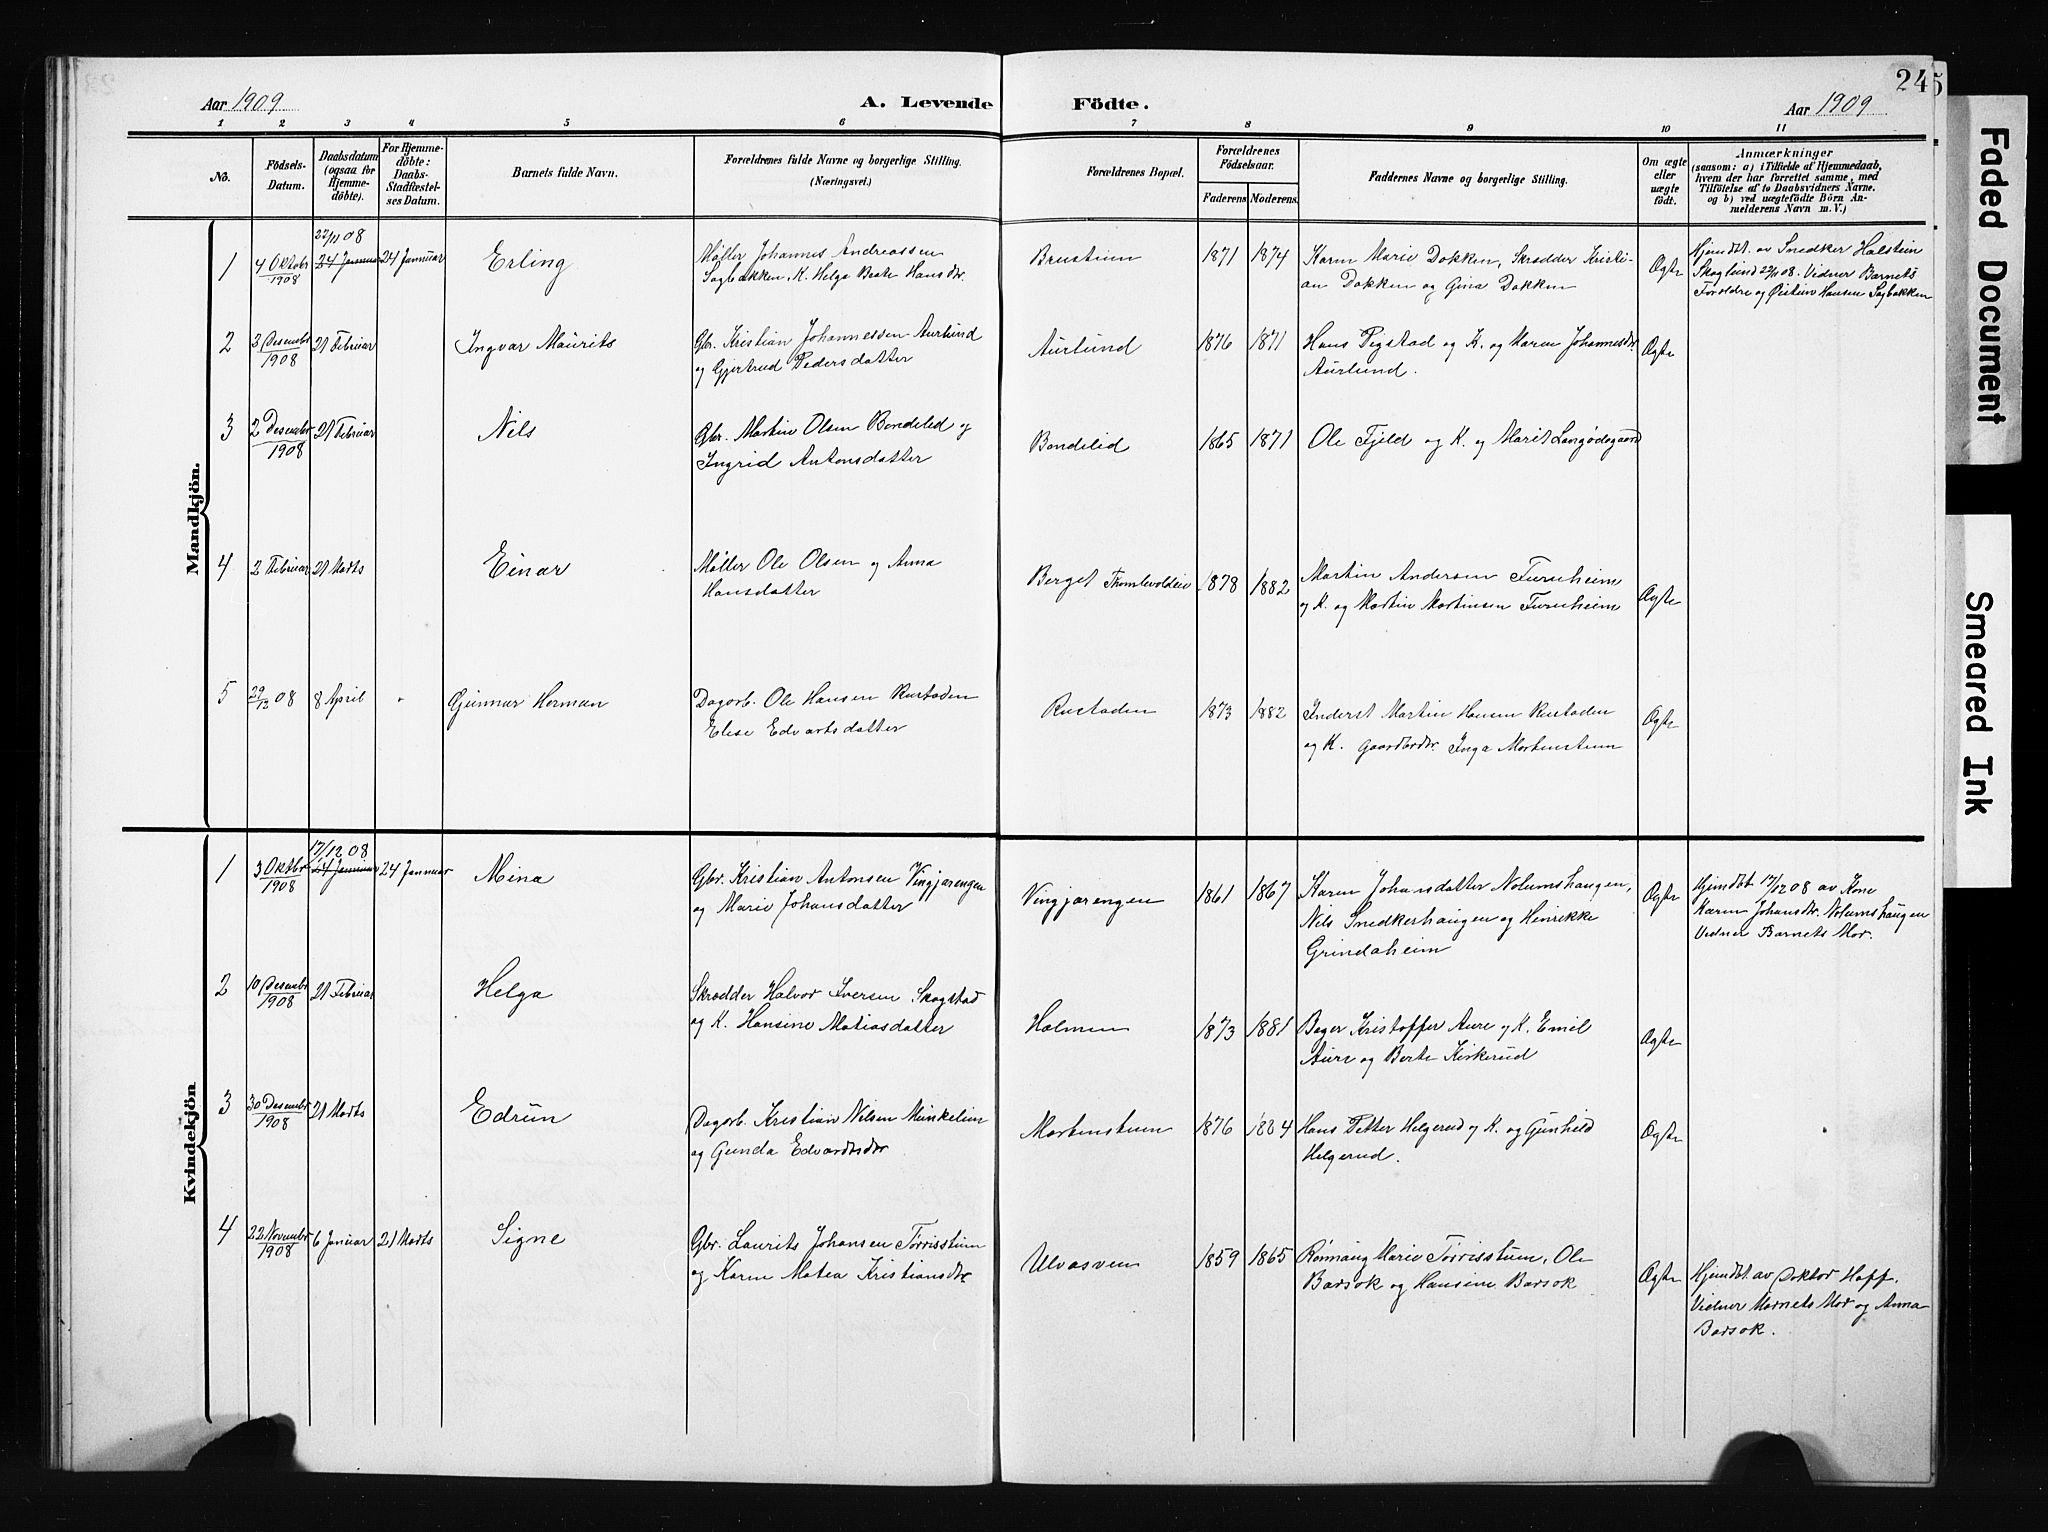 Aar 1909
A. Levende Födte.
Aar 1909
24
5
1 2 3 4 5 6 7 8 9 10 11
No.
Födsels-
Datum.
Daabsdatum
(ogsaa for
Hjemme-
döbte).
For Hjemme-
döbte:
Daabs-
Stadfæstel-
ses Datum.
Barnets fulde Navn.
Forældrenes fulde Navne og borgerlige Stilling.
(Næringsvei.)
Forældrenes Bopæl.
Forældrenes
Födselsaar.
Faderens Moderens
Faddernes Navne og borgerlige Stilling.
Om ægte
eller
uægte
födt.
Anmærkninger
(saasom: a) i Tilfælde af Hjemmedaab,
hvem der har forrettet samme, med
Tilföielse af to Daabsvidners Navne.
og b) ved uægtefödte Börn An-
melderens Navn m. V.)
Mandkjön.
1
4 Oktobr
1908
22/11 08
24 Januar
24 Januar
Erling
Møller Johannes Andreassen
Sagbakken, K. Helga Beate Hansdtr.
Brustuen
1871
1874
Karen Marie Dokken, Skrædder Kristi-
an Dokken og Gina Dokken
Ægte
Hjemdbt. av Snedker Halstein
Skoglund 22/11 08. Vidner Barnets
Forældre og Øistein Hansen Sagbakken
2
3 Desembr
1908
21 Februar
Ingvar Maurits
Gbr. Kristian Johannessen Aurlund
og Gjertrud Pedersdatter
Aurlund
1876
1871
Hans Pigstad og K. og Maren Johannesdtr.
Aurlund.
Ægte
3
2 Desembr
1908
21 Februar
Nils
Gbr. Martin Olsen Bondelid og
Ingrid Antonsdatter
Bondelid
1865
1871
Ole Fjeld og K. og Marit Langødegaard
Ægte
4
2 Februar
21 Marts
Einar
Møller Ole Olsen og Anna
Hansdatter
Berget Thomlevolden
1878
1882
Martin Andersen Furuheim
og K. og Martin Martinsen Furuheim
Ægte
5
29/12 08
8 April
Gunnar Herman
Dagarb. Ole Hansen Rustaden
Elise Edvartsdatter
Rustaden
1873
1882
Inderst Martin Hansen Rustaden
og K. Gaardbrdtr. Inga Mortenstuen
Ægte
Kvindekjön
1
3 Oktbr
1908
17/12 08
24 Januar
24 Januar
Mina
Gbr. Kristian Antonsen Vingjarengen
og Marie Johansdatter
Vingjarengen
1861
1867
Karen Johansdatter Nolumshaugen,
Nils Snedkerhaugen og Henrikke
Grindaheim
Ægte
Hjemdbt 17/12 08 av Kone
Karen Johansdtr. Nolumshaugen
Vidner Barnets Mor.
2
10 Desembr
1908
21 Februar
Helga
Skrædder Halvor Iversen Skogstad
og K. Hansine Matiasdatter
Holmen
1873
1881
Bager Kristoffer Aure og K. Emil
Aure og Berte Kirkerud
Ægte
3
30 Desembr
1908
21 Marts
Edrun
Dagarb. Kristian Nilsen Munkelien
og Gunda Edvardsdtr
Mortenstuen
1876
1884
Hans Petter Helgerud og K. og Gunhild
Helgerud.
Ægte
4
22 Novembr
1908
6 Januar
21 Marts
Signe
Gbr. Laurits Johansen Torrisstuen
og Karen Matea Kristiansdtr
Ulvasven
1859
1865
Rønnaug Marie Torrisstuen, Ole
Barsok og Hansine Barsok
Ægte
Hjemdbt. av Doktor Hoff.
Vidner Mornets Mor og Anna
Barsok.
Faded Document
Smeared Ink